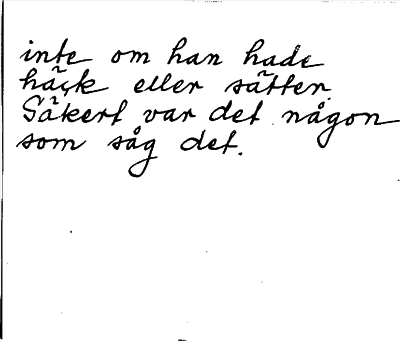 inte om han hade
häck eller sätter.
Säkert var det någon
som såg det.